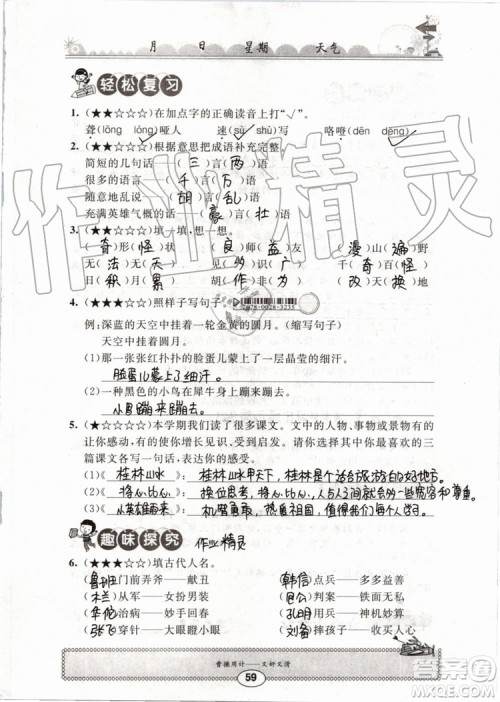 月 日 星期 天气
轻松复习
1. (★★☆☆☆)在加点字的正确读音上打“√”。
聋(lōng lóng)哑人 速(sù shù)写 咯噔(dēn dēng)
2. (★★☆☆☆)根据意思把成语补充完整。
简短的几句话 (三)言(两)语
很多的语言 (千)言(万)语
随意地乱说 (胡)言(乱)语
充满英雄气概的话 (豪)言(壮)语
3. (★★☆☆☆)填一填,想一想。
(奇)形(怪)状 (良)师(益)友 (漫)山(遍)野
无(法)无(天) 见(多)识(广) 千(奇)百(怪)
日(积)月(累) 改(天)换(地)
4. (★★★☆☆)照样子写句子。
例:深蓝的天空中挂着一轮金黄的圆月。(缩写句子)
天空中挂着圆月。
(1)那一张张红扑扑的脸蛋儿蒙上了一层晶莹的细汗。
脸蛋儿蒙上了细汗。
(2)一种黑色的小鸟在犀牛身上蹦来蹦去。
小鸟蹦来蹦去。
5. (★★★☆☆)本学期我们读了很多课文。文中的人、事物或景物有的
让你感动,有的使你增长见识、受到启发。请你选择印象最深的三
篇课文各写一句话,表达你的感受。
(1)《桂林山水》:桂林山水甲天下,桂林是个适合旅游的好地方。
(2)《将心比心》:换位思考,将心比心,人与人之间会多一些宽容和尊重。
(3)《小英雄雨来》:机智勇敢、热爱祖国,值得我们学习。
趣味探究
作业精灵
6. (★★★☆☆)填古代人名。
(鲁班)门前弄斧——献丑 (韩信)点兵——多多益善
(木兰)从军——女扮男装 (包公)判案——铁面无私
(华佗)治病——妙手回春 (孔明)用兵——神机妙算
(张飞)穿针——大眼瞪小眼 (刘备)摔孩子——收买人心
曹操用计——又奸又滑
59
作业精灵
答案圈